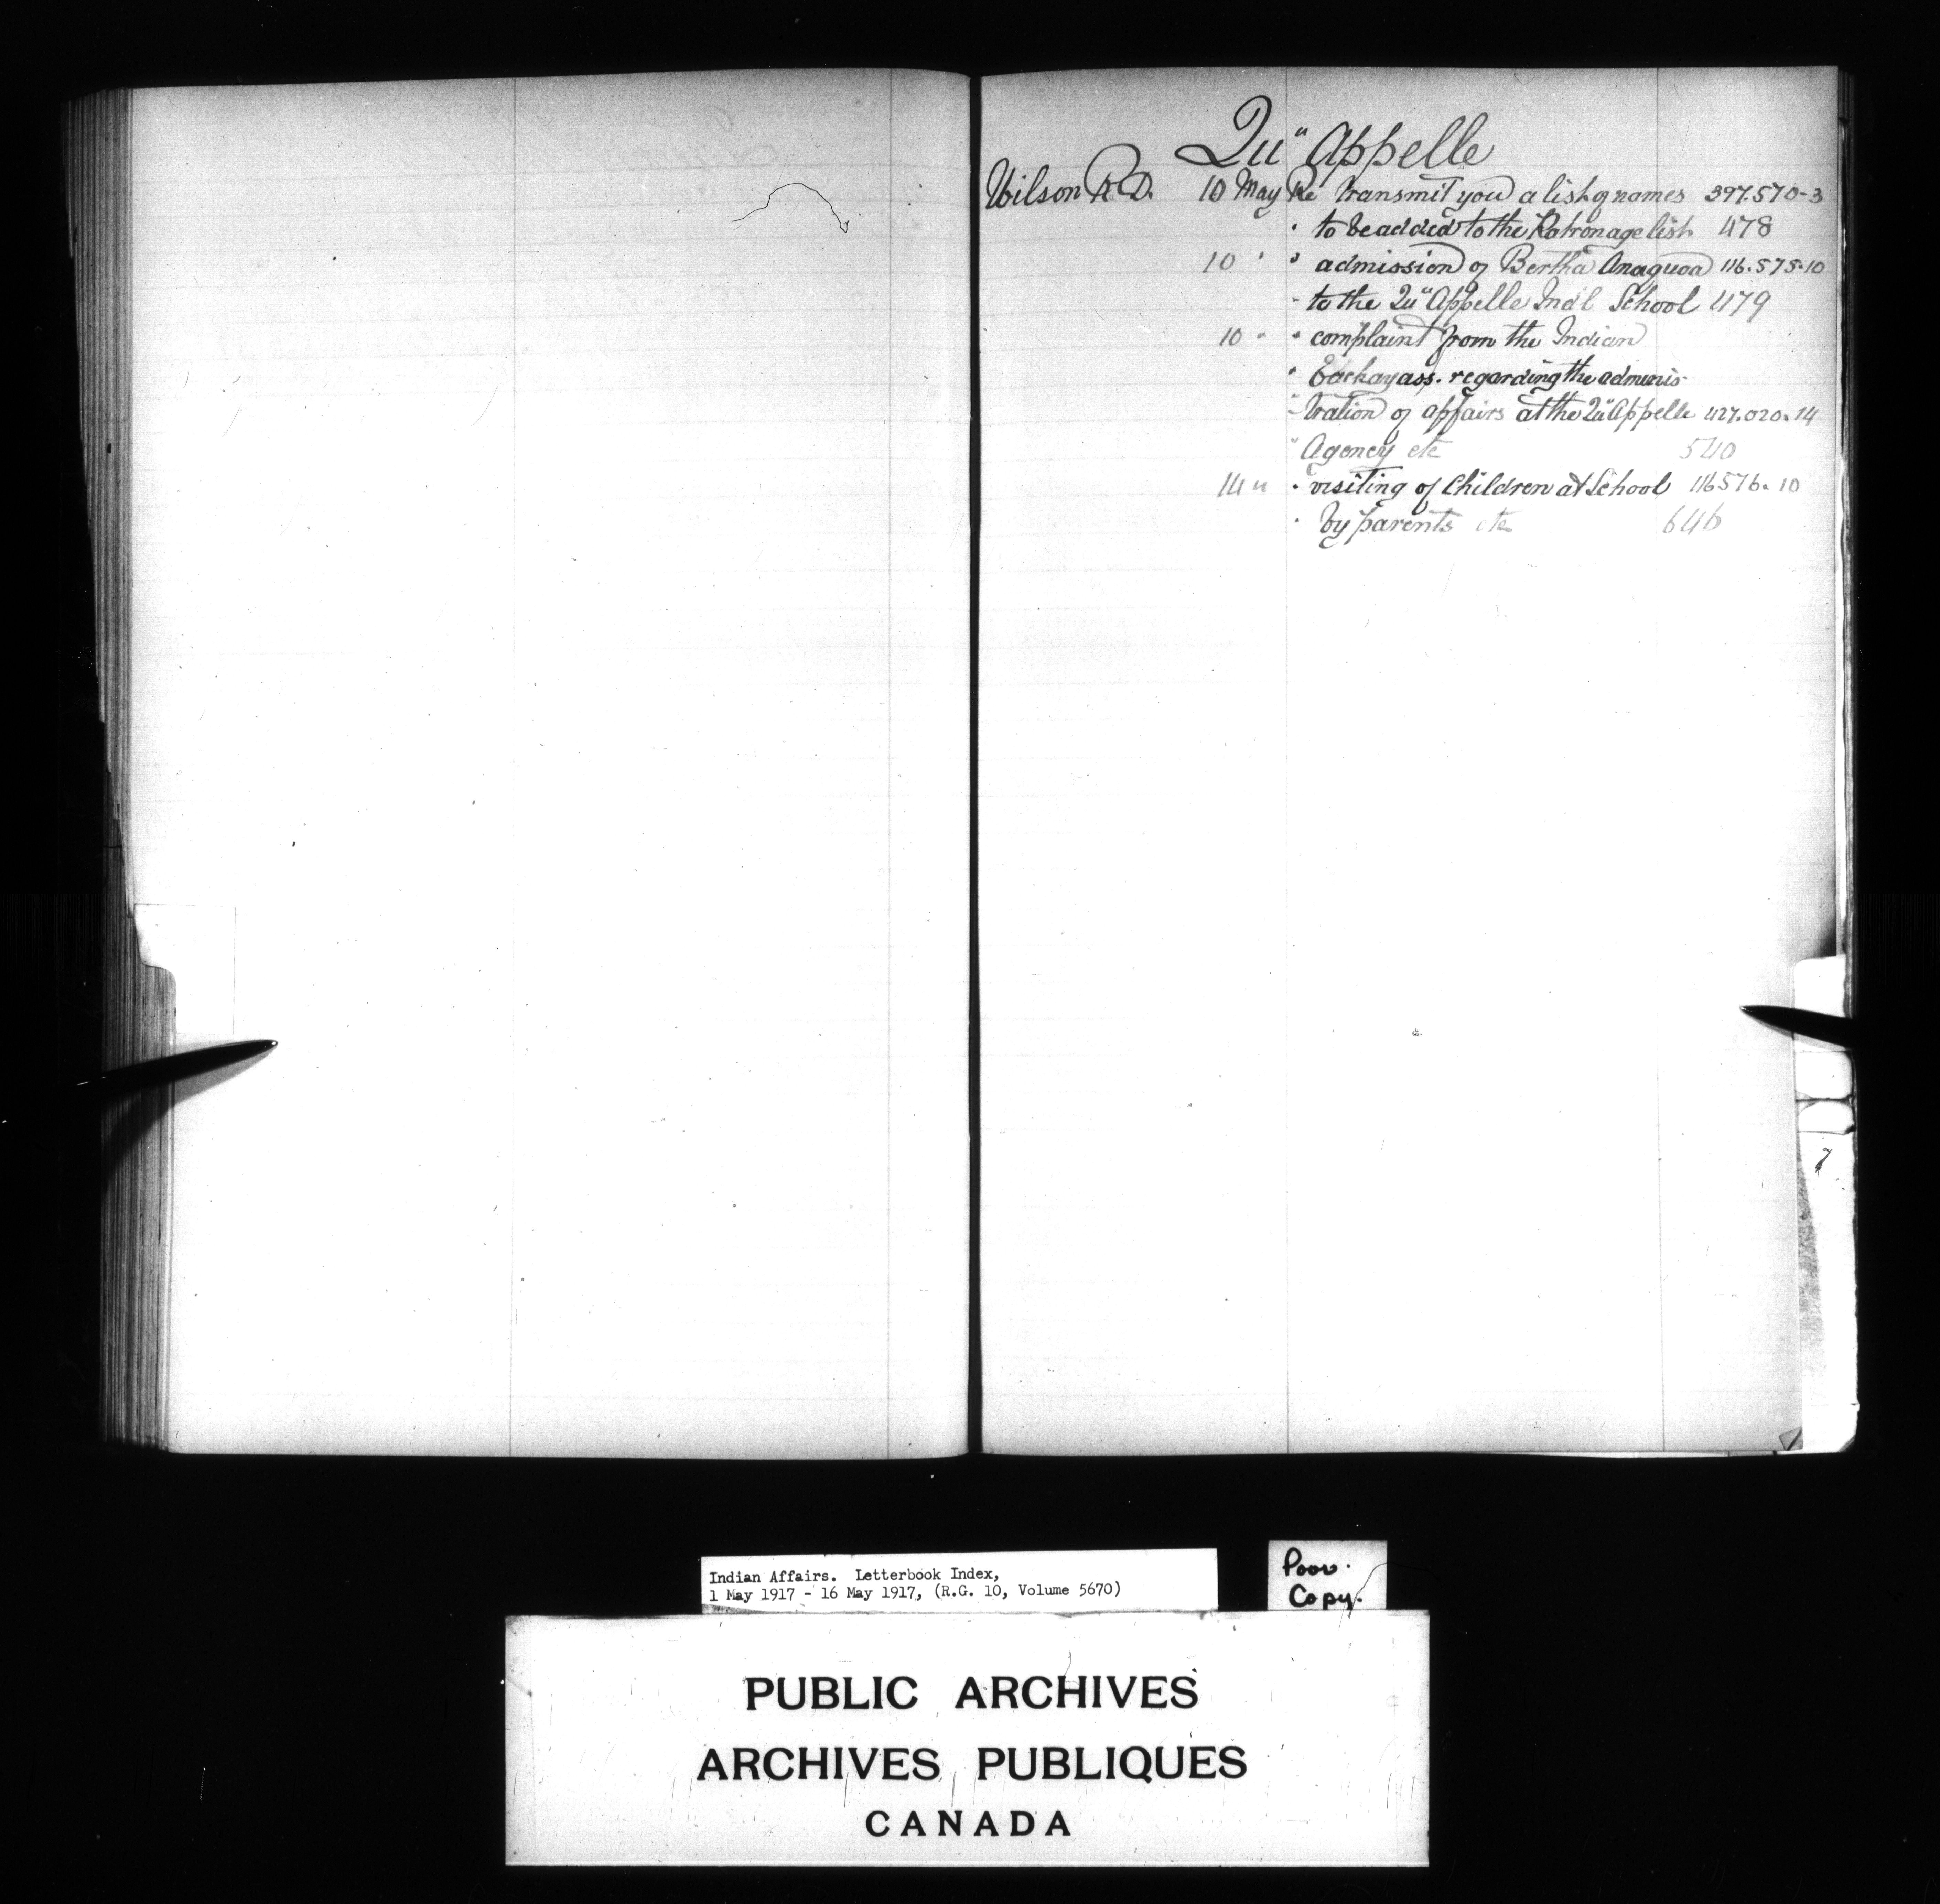 Qu"Appelle
Wilson R D. 10 May Re transmit you a list of names 397.570-3
" to be added to the Patronage list 478
10 " " admission of Bertha Anaquod 116.575-10
" to the Qu"Appelle Ind'l School 479
10 " " complaint from the Indian
" regarding the adminis-
"tration of affairs at the Qu"Appelle 427.020.14
" Agency etc 540
14 " " visiting of Children at School 116576-10
" by parents etc 646
7
Indian Affairs. Letterbook Index,
1 May 1917 - 16 May 1917, (R.G. 10, Volume 5670)
Poor
Copy.
PUBLIC ARCHIVES
ARCHIVES PUBLIQUES
CANADA